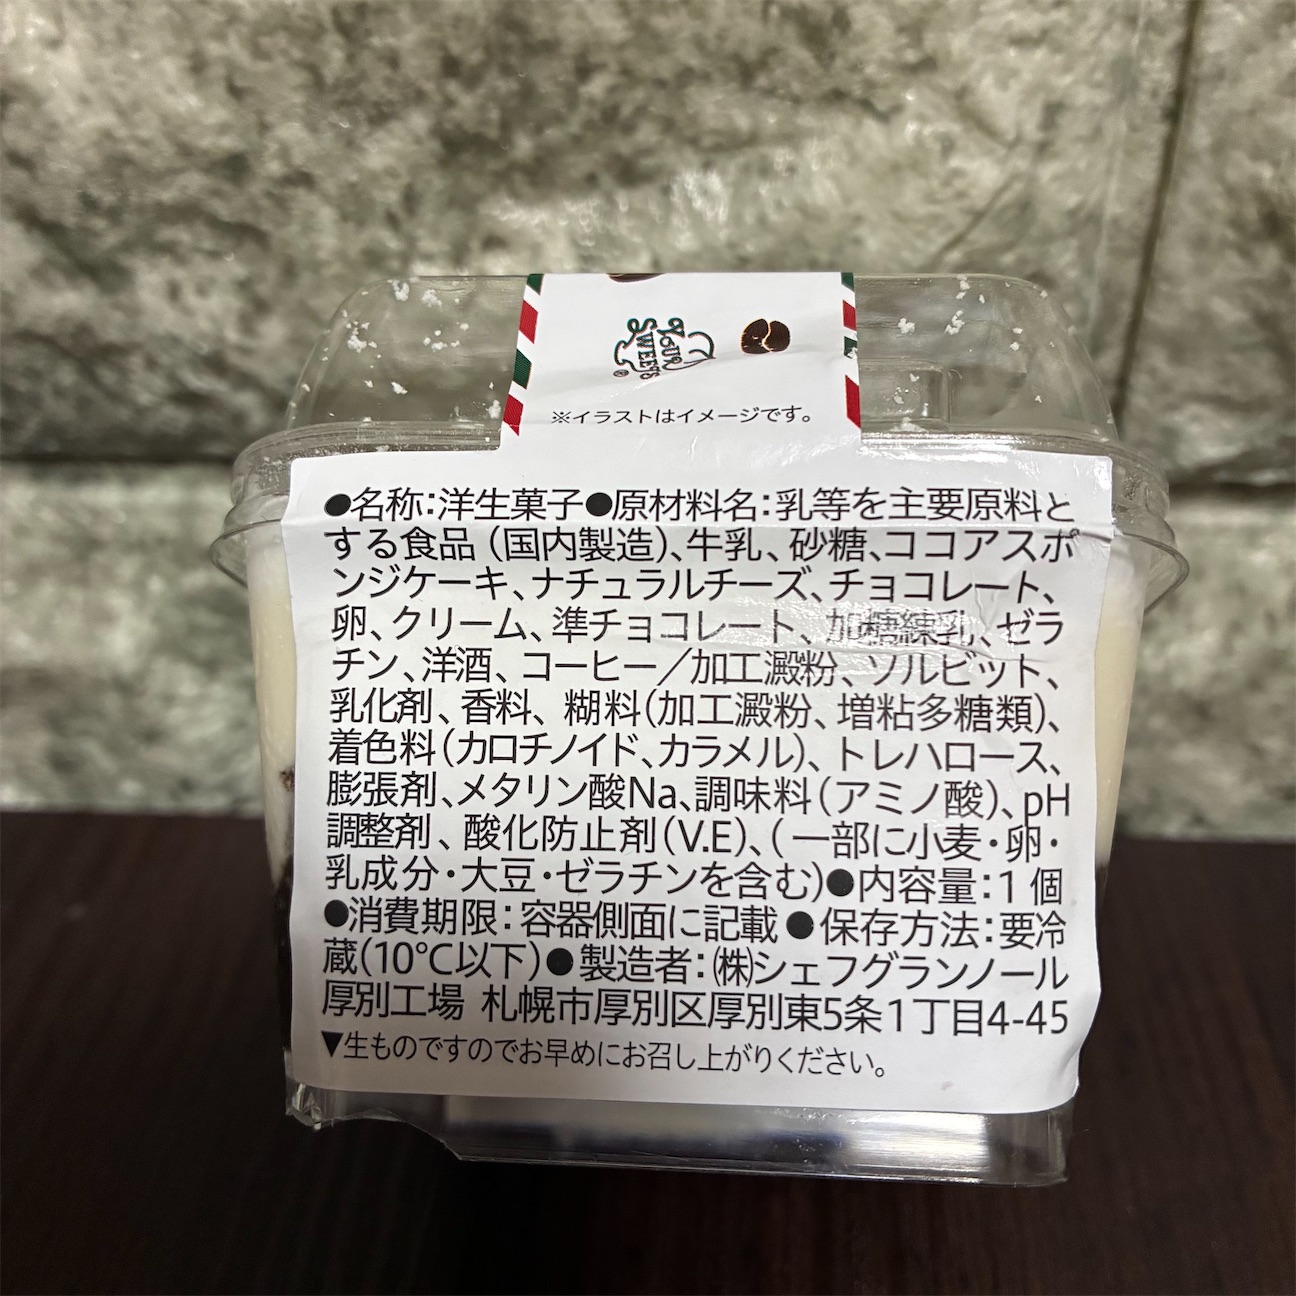 Your
SWEETS®
※イラストはイメージです。
●名称:洋生菓子●原材料名:乳等を主要原料と
する食品(国内製造)、牛乳、砂糖、ココアスポ
ンジケーキ、ナチュラルチーズ、チョコレート、
卵、クリーム、準チョコレート、加糖練乳、ゼラ
チン、洋酒、コーヒー/加工澱粉、ソルビット、
乳化剤、香料、糊料(加工澱粉、増粘多糖類)、
着色料(カロチノイド、カラメル)、トレハロース、
膨張剤、メタリン酸Na、調味料(アミノ酸)、pH
調整剤、酸化防止剤(V.E)、(一部に小麦・卵・
乳成分・大豆・ゼラチンを含む)●内容量:1個
●消費期限:容器側面に記載●保存方法:要冷
蔵(10℃以下)●製造者:㈱シェフグランノール
厚別工場 札幌市厚別区厚別東5条1丁目4-45
▼生ものですのでお早めにお召し上がりください。